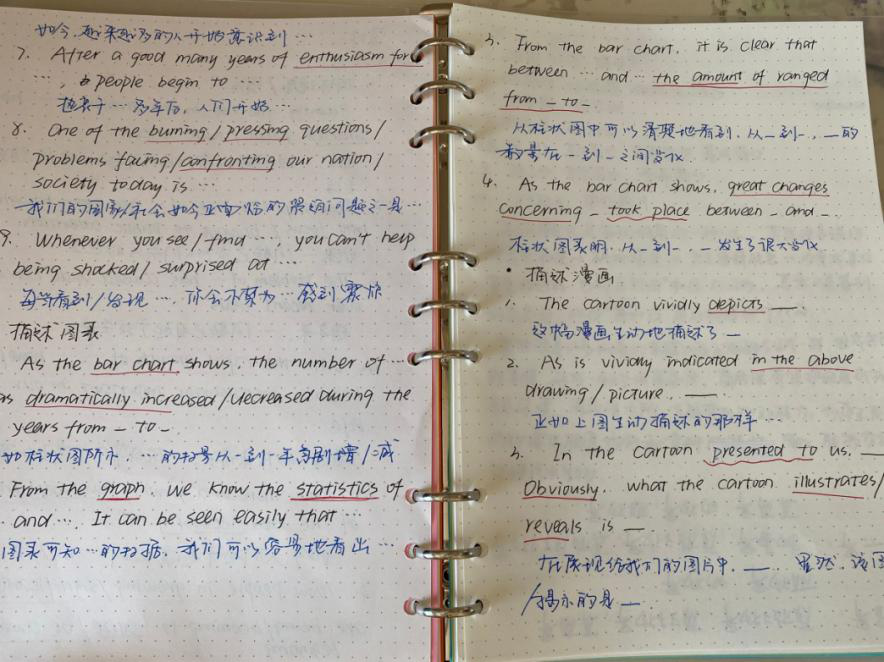 如今,越来越多的人开始意识到…
7. After a good many years of enthusiasm for
…, people begin to …
热衷于…多年后,人们开始…
8. One of the burning/pressing questions/
problems facing/confronting our nation/
society today is …
我们的国家/社会如今正面临的紧迫问题之一是…
9. Whenever you see/find …, you can't help
being shocked/surprised at …
每当看到/发现…,你会不禁为…感到震惊
描述图表
As the bar chart shows, the number of …
as dramatically increased/decreased during the
years from _ to _.
如柱状图所示,…的数量从_到_年急剧增/减
From the graph, we know the statistics of
. and …. It can be seen easily that …
图表可知…的数据,我们可以容易地看出…
3. From the bar chart, it is clear that
between … and … the amount of ranged
from _ to _
从柱状图中可以清楚地看到,从_到_,_的
数量在_到_之间
4. As the bar chart shows, great changes
concerning _ took place between _ and _.
柱状图表明,从_到_,_发生了很大
• 描述漫画
1. The cartoon vividly depicts __
这幅漫画生动地描述了_
2. As is vividly indicated in the above
drawing/picture, __
正如上图生动描述的那样…
3. In the cartoon presented to us, __
Obviously, what the cartoon illustrates/
reveals is __.
在展现给我们的图片中,__. 显然,该图
/揭示的是_